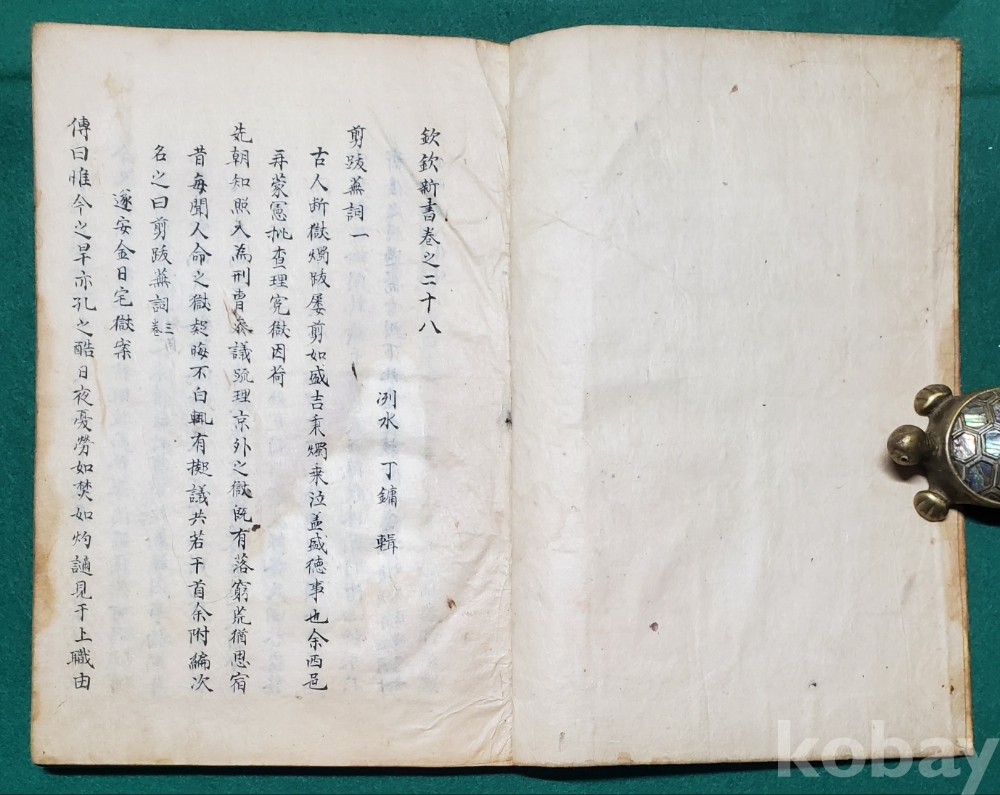 欽欽新書卷之二十八
洌水 丁鏞 輯
剪跋蕪詞一
古人斷獄燭跋屢剪如盛吉秉燭垂泣盖盛德事也余西邑
再蒙憲批查理寃獄因荷
先朝知照入為刑曹叅議䟽理京外之獄旣有落窮荒猶思宿
昔每聞人命之獄疑晦不白輒有擬議共若干首余附編次
名之曰剪跋蕪詞三卷
遂安金日宅獄案
傳曰惟今之旱亦孔之酷日夜憂勞如焚如灼謫見于上職由
kobay